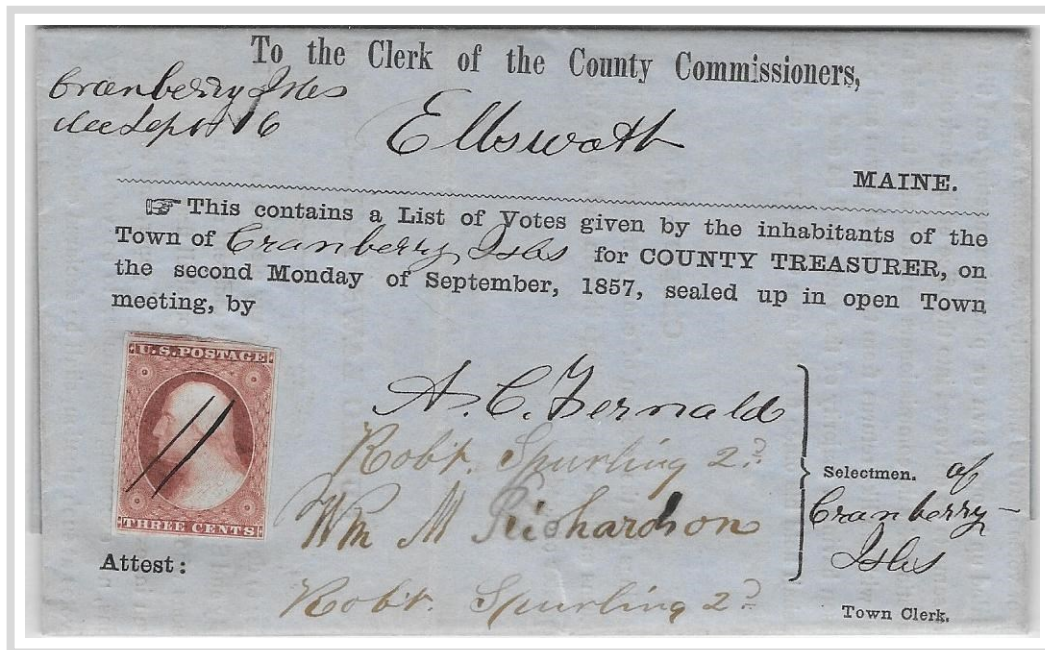 To the Clerk of the County Commissioners,
Cranberry Isles
Sept 16
Ellsworth
MAINE.
☞ This contains a List of Votes given by the inhabitants of the
Town of Cranberry Isles for COUNTY TREASURER, on
the second Monday of September, 1857, sealed up in open Town
meeting, by
U.S. POSTAGE
THREE CENTS
A. C. Fernald
Robt. Spurling 2d
Wm M Richardson
Selectmen. of
Cranberry-
Isles
Attest:
Robt. Spurling 2d
Town Clerk.